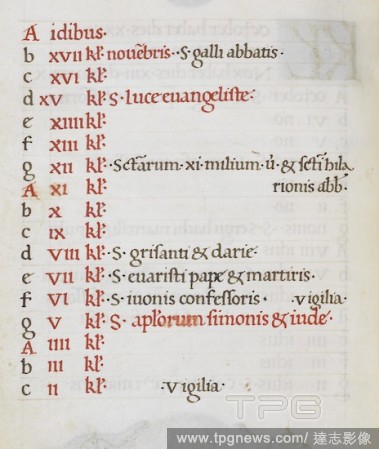 A idibus.
b xvii kƚ. novēbris. S. galli abbatis.
c xvi kƚ.
d xv kƚ. S. luce evangeliste.
e xiiii kƚ.
f xiii kƚ.
g xii kƚ. Sctārum. xi. milium. ū. & scti hila
A xi kƚ. rionis abb.
b x kƚ.
c ix kƚ.
d viii kƚ. S. grisanti & darie.
e vii kƚ. S. evaristi pape & martiris.
f vi kƚ. S. ivonis confessoris. vigilia.
g v kƚ. S. aplorum simonis & iude.
A iiii kƚ.
b iii kƚ.
c ii kƚ. vigilia.
TPG
www.tpgnews.com / 達志影像